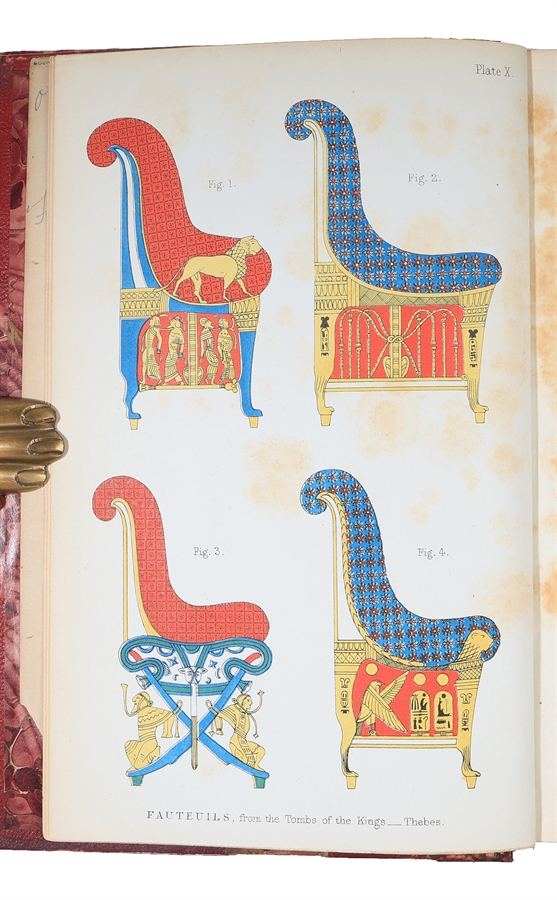 Plate X.
Fig. 1.
Fig. 2.
Fig. 3.
Fig. 4.
FAUTEUILS, from the Tombs of the Kings__Thebes.